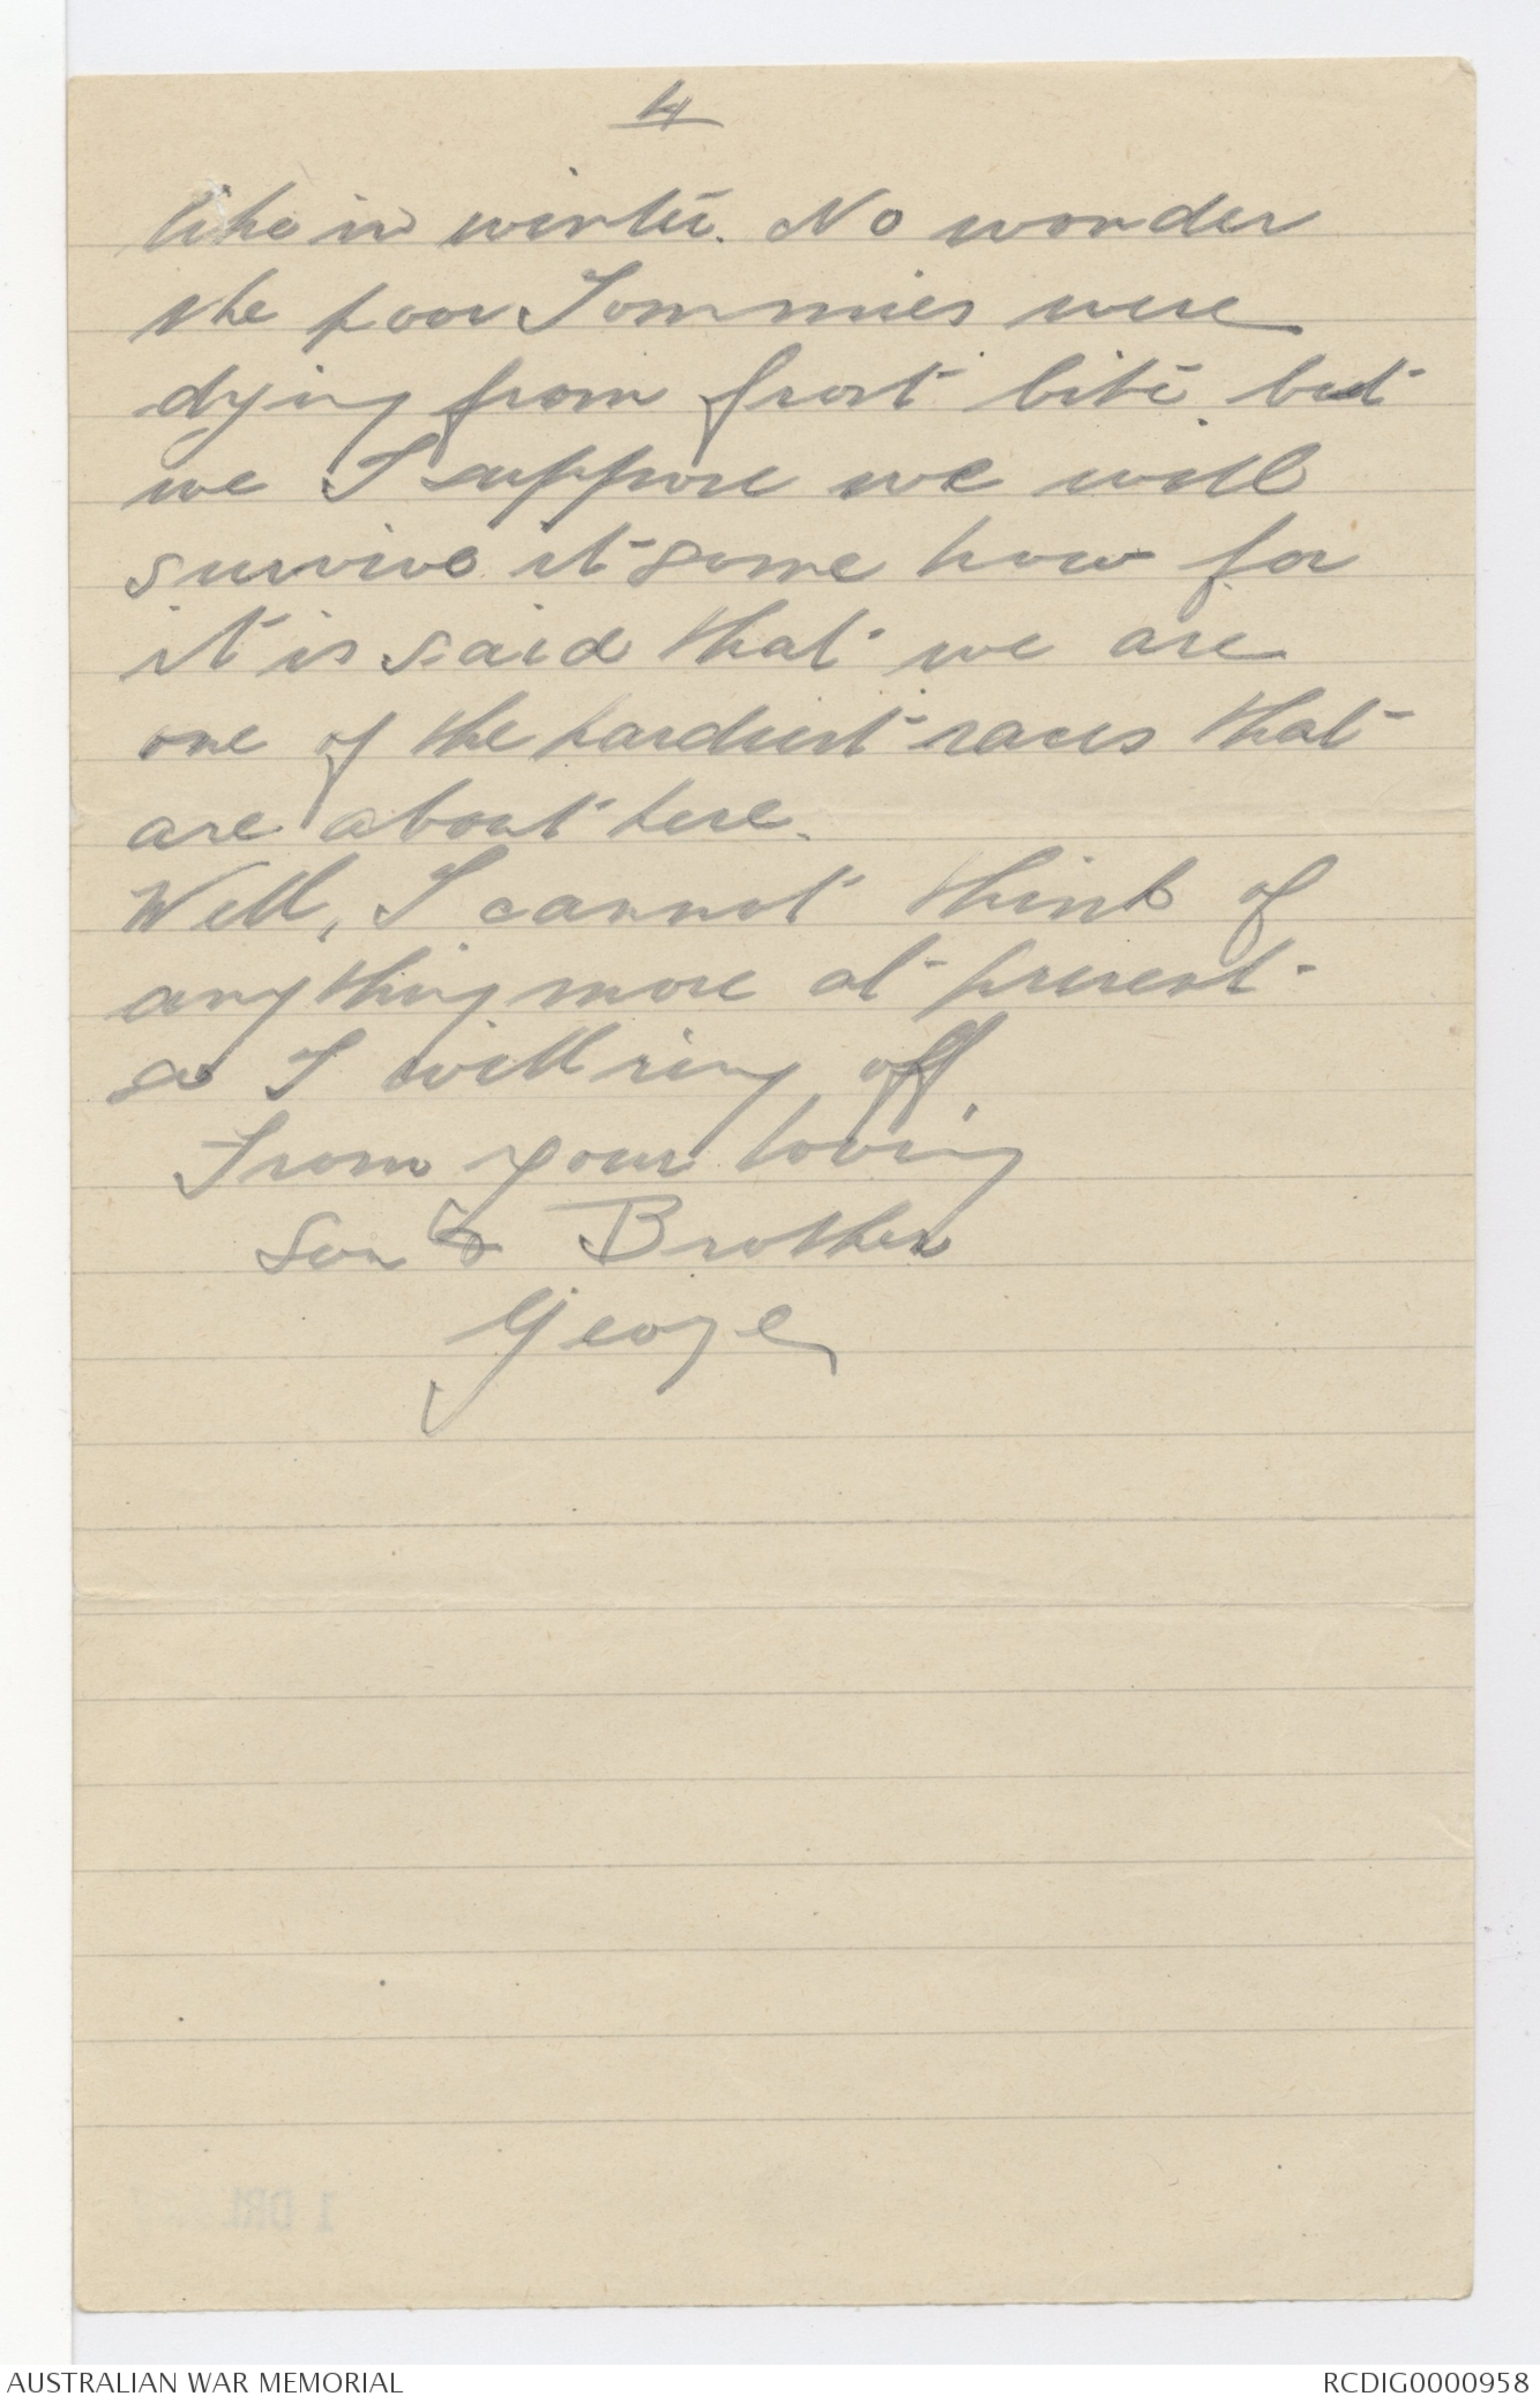 4
like in winter. No wonder
the poor Tommies were
dying from frost bite. but
we I suppose we will
survive it some how for
it is said that we are
one of the hardiest races that
are about here.
Well, I cannot think of
anything more at present
so I will ring off.
From your loving
Son & Brother
George
1 DRL
AUSTRALIAN WAR MEMORIAL
RCDIG0000958